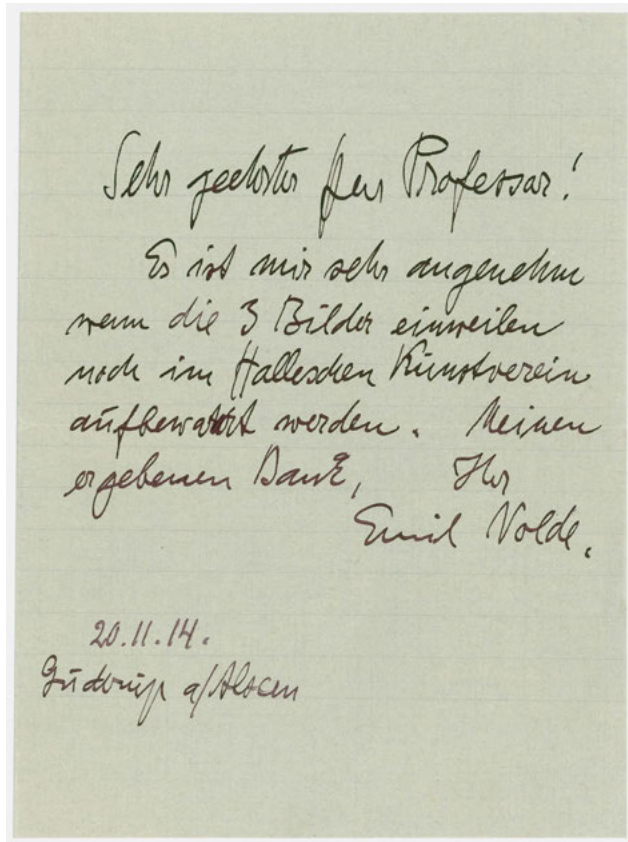 Sehr geehrter Herr Professor!
Es ist mir sehr angenehm
wenn die 3 Bilder einweilen
noch im Halleschen Kunstverein
aufbewahrt werden. Meinen
ergebenen Dank, Ihr
Emil Nolde.
20.11.14.
Guderup a/Alsen